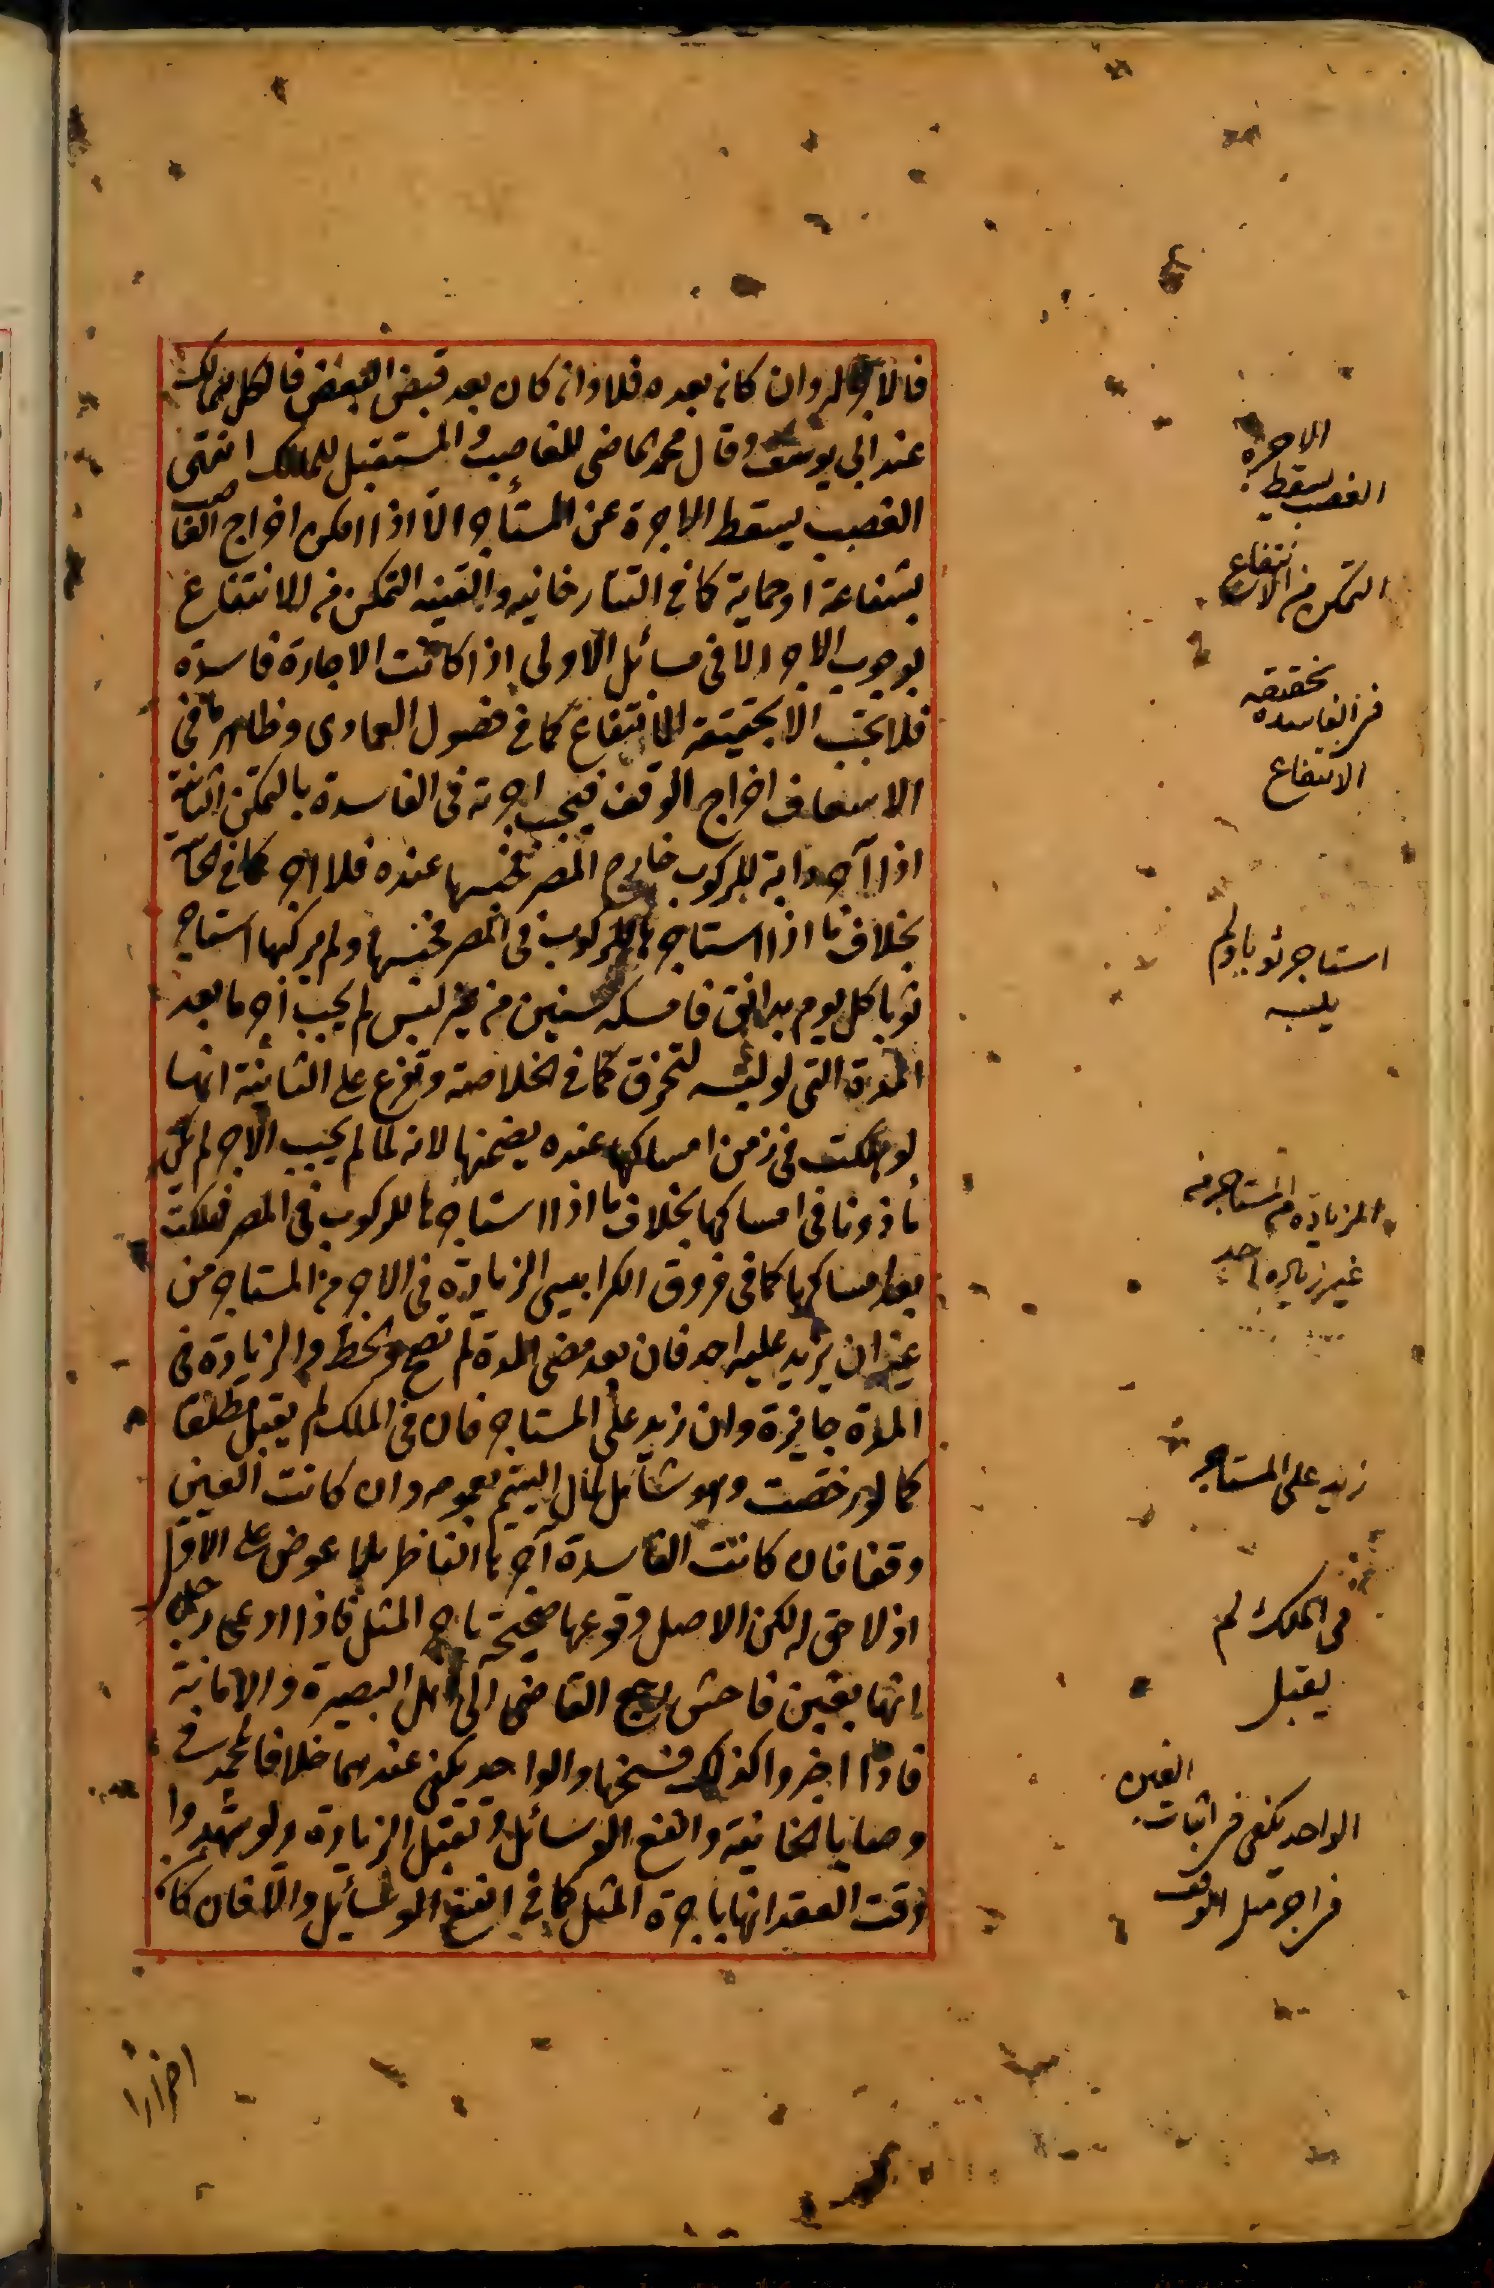 فالاجر له وان كان بعده فلا وان كان بعد قبض البعض فالكل للمالك
عند ابي يوسف وقال محمد الماضى للغاصب والمستقبل للمالك انتهى
الغصب يسقط الاجرة عن المستأجر الّا اذا امكن اخراج الغاصب
بشفاعة او حماية كما في التتارخانيه والقنيه التمكن من الانتفاع
يوجب الاجر الا في مسائل الاولى اذا كانت الاجارة فاسدة
فلا تجب الّا بحقيقة الانتفاع كما في فصول العمادى وظاهر ما في
الاسعاف اخراج الوقف فيجب اجرته في الفاسدة بالتمكن الثانية
اذا آجر دابة للركوب خارج المصر فحبسها عنده فلا اجر كما في
بخلاف ما اذا استاجرها للركوب في المصر فحبسها ولم يركبها استاجر
ثوبا كل يوم بدانق فامسكه سنين من غير لبس لم يجب اجر ما بعد
المدة التى لو لبسه لتخرق كما في الخلاصة وتفرع على الثانية انها
لو هلكت في زمن امساكها عنده يضمنها لانه لما لم يجب الاجر لم يكن
مأذونا في امساكها بخلاف ما اذا استاجرها للركوب في المصر فهلكت
بعد امساكها كما في فروق الكرابيسى الزيادة في الاجر من المستاجر من
غير ان يزيد عليه احد فان بعد مضى المدة لم تصح والحط والزيادة في
المدة جايزة وان زيد على المستاجر فان في الملك لم يقبل مطلقا
كما لو رخصت وهو شامل لمال اليتيم بعمومه وان كانت العين
وقفا فان كانت الفاسدة آجرها الناظر بلا عوض على الاول
اذ لا حق له لكن الاصل وقوعها صحيحة باجر المثل فاذا ادعى رجل
انها بغبن فاحش رجع القاضى الى اهل البصيرة والامانة
فاذا اخبروا كذلك فسخها والواحد يكفى عندهما خلافا لمحمد في
وصايا الخانية وانفع الوسائل وتقبل الزيادة ولو شهدوا
وقت العقد انها باجرة المثل كما في انفع الوسائل والّا فان كا
الاجرة
الغصب يسقط
التمكن من الانتفاع
بحقيقه
فى الفاسده
الانتفاع
استاجر ثوبا ولم
يلبسه
الزياده من المستاجر من
غير زياده احد
زيد على المستاجر
فى الملك لم
يقبل
الغبن
الواحد يكفى فى اثبات
فى اجر مثل الوقف